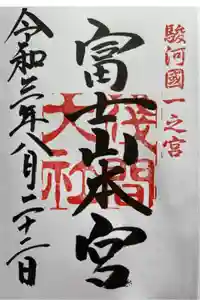 駿河國一之宮
富士山本宮
浅間
大社
令和三年八月二十二日